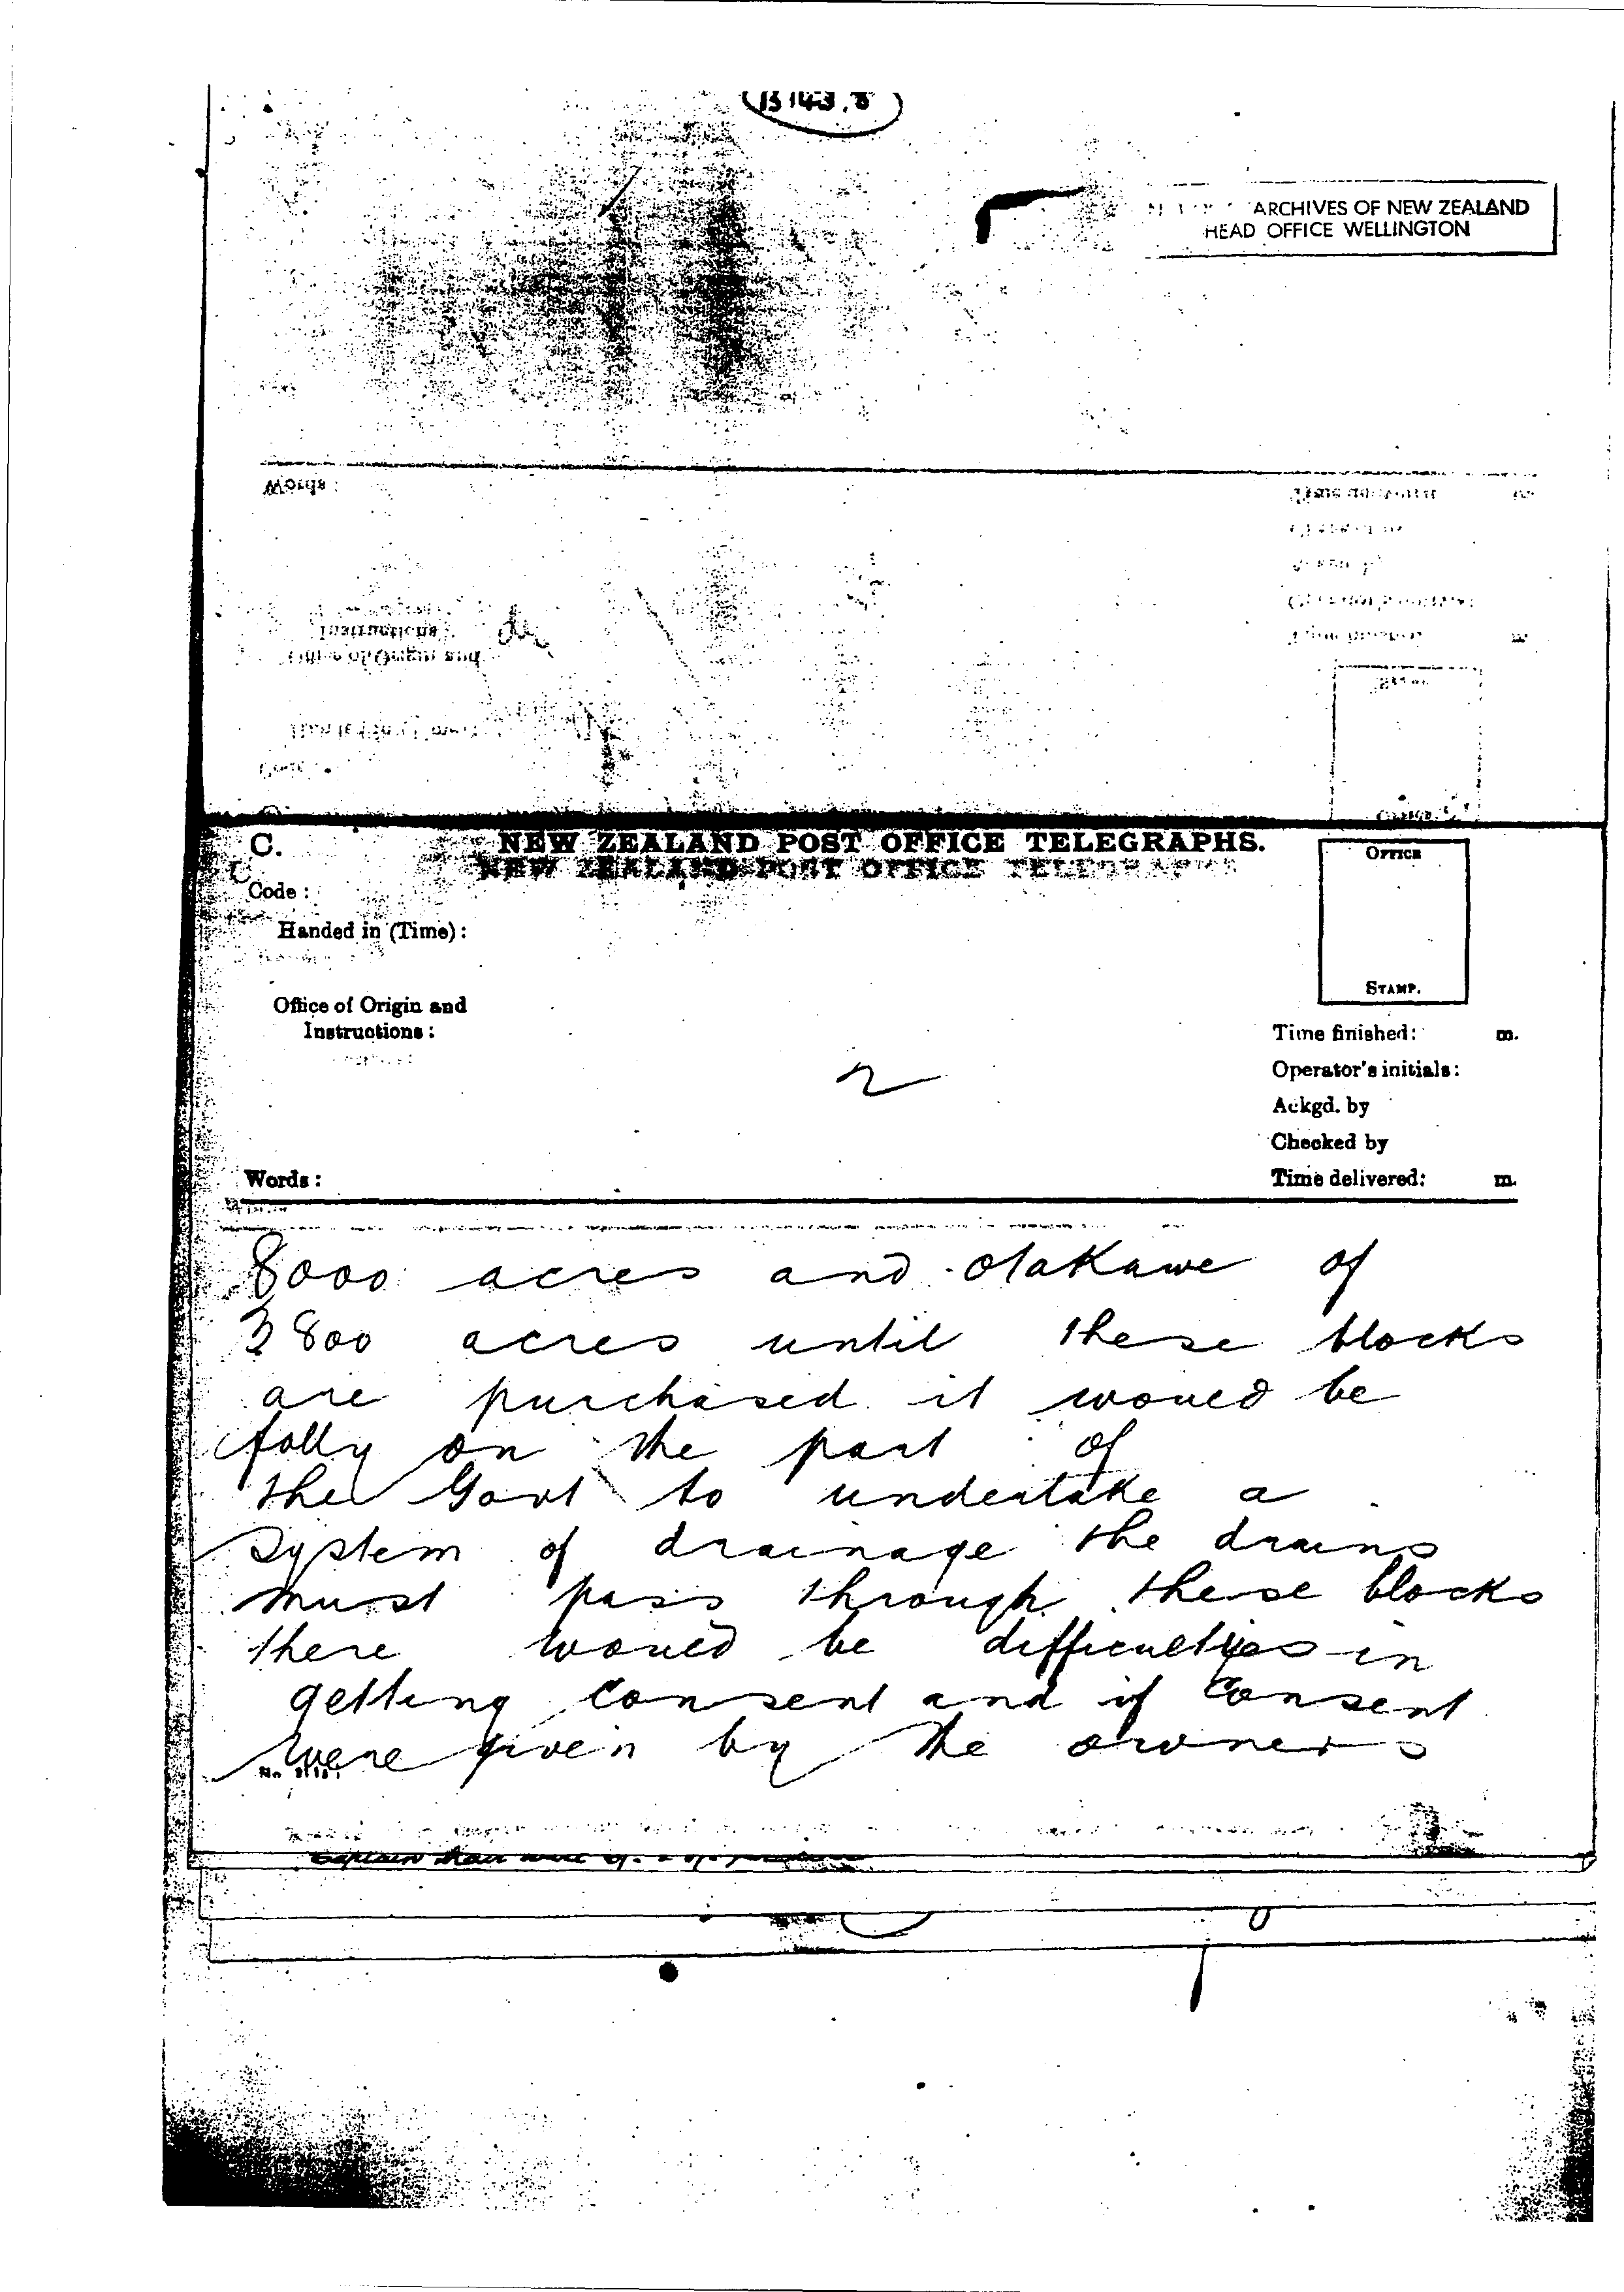 ARCHIVES OF NEW ZEALAND
HEAD OFFICE WELLINGTON
Words:
Instructions
C.
NEW ZEALAND POST OFFICE TELEGRAPHS.
NEW ZEALAND POST OFFICE TELEGRAPHS
Code:
Handed in (Time):
OFFICE
STAMP.
Office of Origin and
Instructions:
Time finished: m.
Operator's initials:
2
Ackgd. by
Checked by
Words:
Time delivered: m.
8000 acres and Otakawe of
3800 acres until these blocks
are purchased it would be
folly on the part of
the Govt to undertake a
system of drainage the drains
must pass through these blocks
there would be difficulties in
getting consent and if consent
were given by the owners